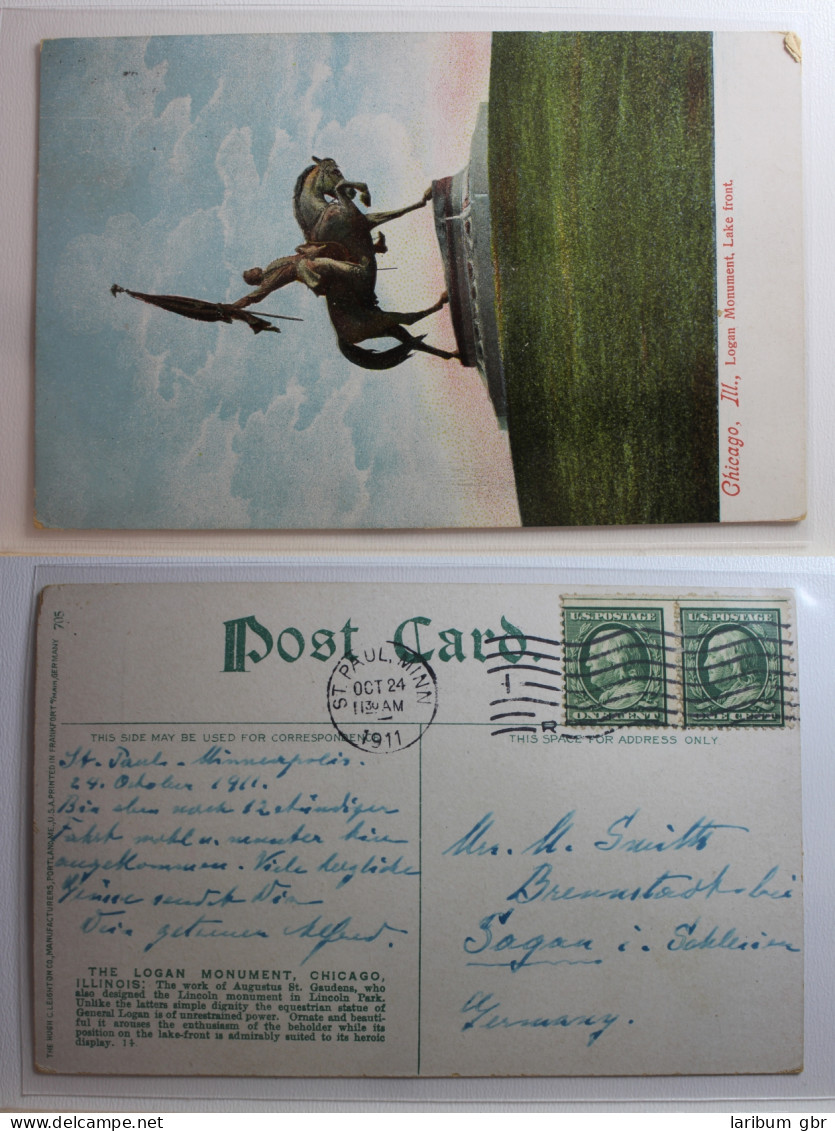 Chicago, Ill., Logan Monument, Lake front.
Post Card.
ST. PAUL, MINN
OCT 24
11 30 AM
1911
1
R
U.S. POSTAGE
ONE CENT
U.S. POSTAGE
ONE CENT
THIS SIDE MAY BE USED FOR CORRESPONDENCE
THIS SPACE FOR ADDRESS ONLY
St. Paul - Minneapolis.
24. October 1911.
Bin eben nach 12 stündiger
Fahrt wohl u. munter hier
angekommen. Viele herzliche
Grüsse sendet Dir
Dein getreuer Alfred.
Mrs. M. Smith
Sagan i. Schlesien
Germany.
THE LOGAN MONUMENT, CHICAGO,
ILLINOIS: The work of Augustus St. Gaudens, who
also designed the Lincoln monument in Lincoln Park.
Unlike the latters simple dignity the equestrian statue of
General Logan is of unrestrained power. Ornate and beauti-
ful it arouses the enthusiasm of the beholder while its
position on the lake-front is admirably suited to its heroic
display. 14
THE HUGH C. LEIGHTON CO., MANUFACTURERS, PORTLAND, ME., U.S.A. PRINTED IN FRANKFORT /MAIN, GERMANY 705
laribum gbr